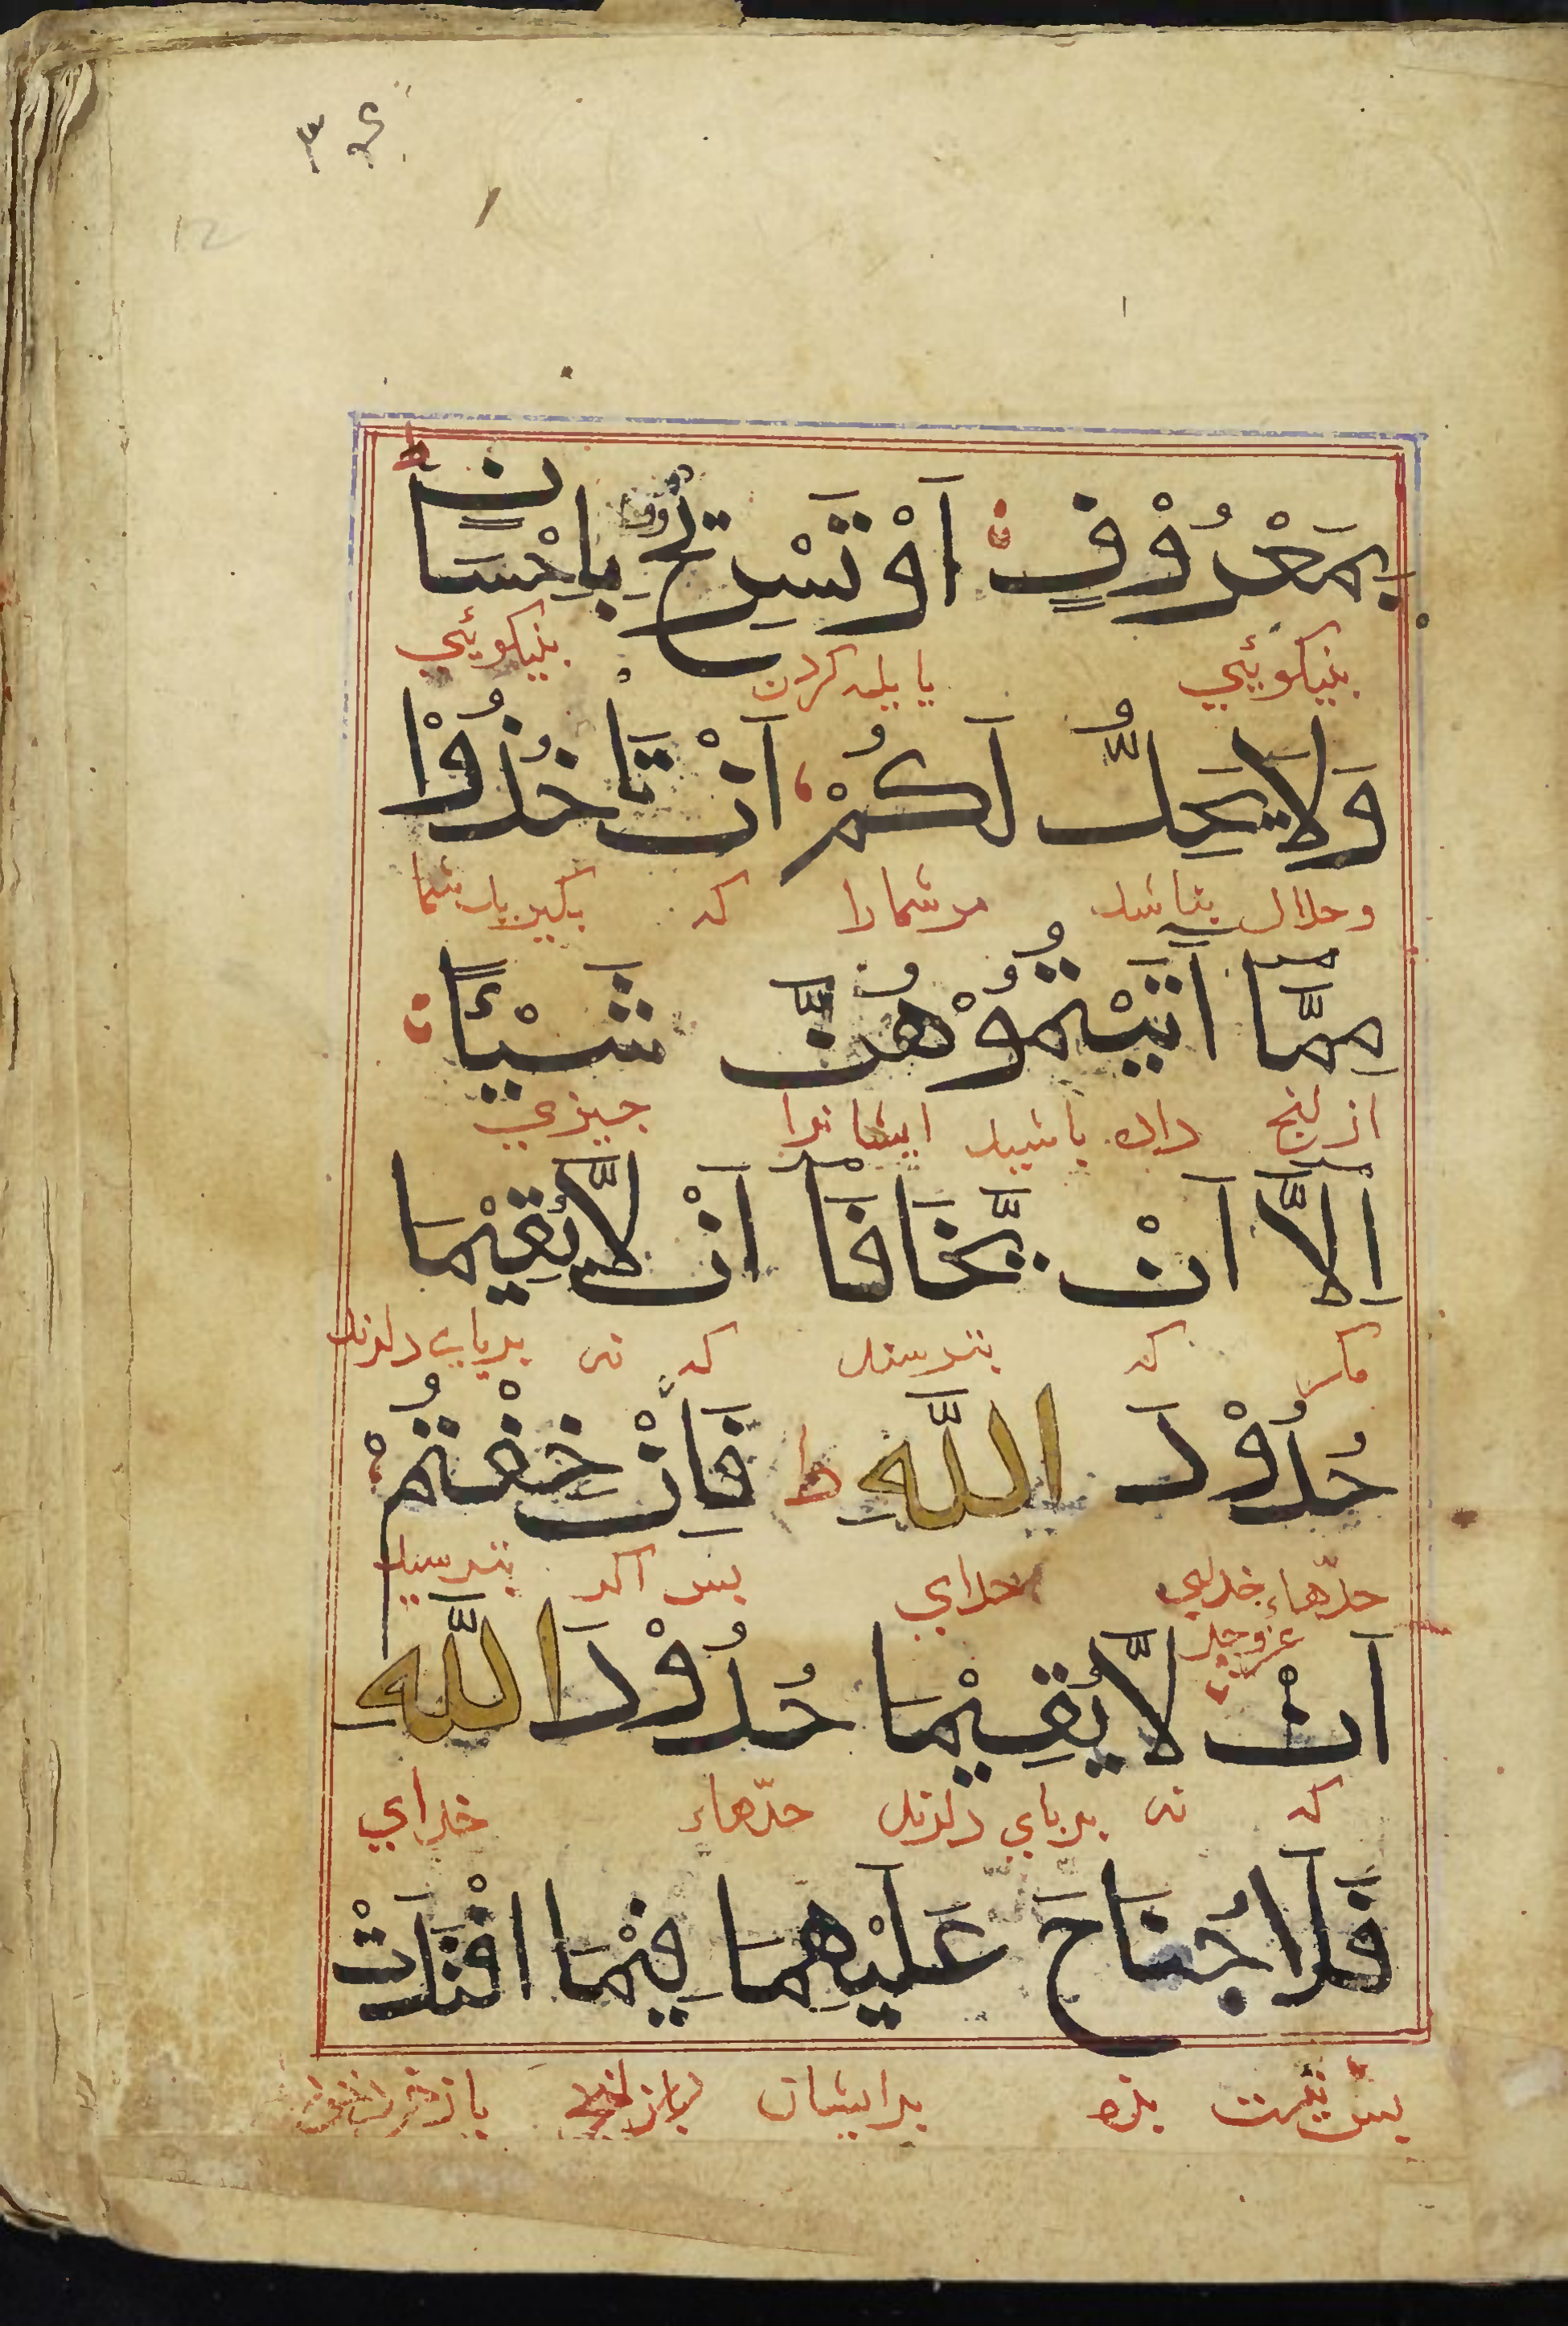 بِمَعْرُوْفٍ اَوْ تَسْرِيْحٌ بِاِحْسَانٍ ط
بنیکویئي یا یله کردن بنیکویئي
وَلَا يَحِلُّ لَكُمْ اَنْ تَاْخُذُوْا
وحلال نباشد مر شمارا که بکیرید شما
مِمَّا اٰتَيْتُمُوْهُنَّ شَيْئًا
از انج داده باشید ایشانرا جیزي
اِلَّا اَنْ يَّخَافَا اَنْ لَّا يُقِيْمَا
مکر که بترسند که نی برپای دارند
حُدُوْدَ اللّٰهِ ط فَاِنْ خِفْتُمْ
حدّهاء خدای عزوجل خدای بس اکر بترسید
اَنْ لَّا يُقِيْمَا حُدُوْدَ اللّٰهِ
که نی برپاي دارند حدّهاء خداي
فَلَا جُنَاحَ عَلَيْهِمَا فِيْمَا افْتَدَتْ
بس نیست بزه برایشان